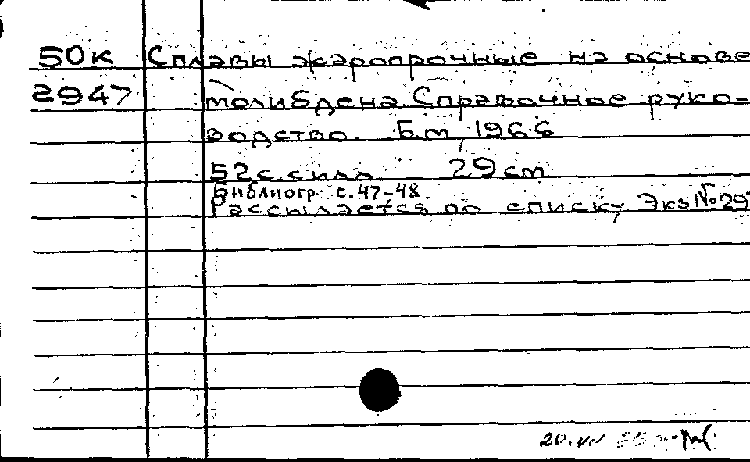 50к Сплавы жаропрочные на основе
2947 молибдена Справочное руко-
водство. Б.м, 1966
52 с. с илл. 29 см
Библиогр. с. 47-48
Рассылается по списку Экз № 29
20.